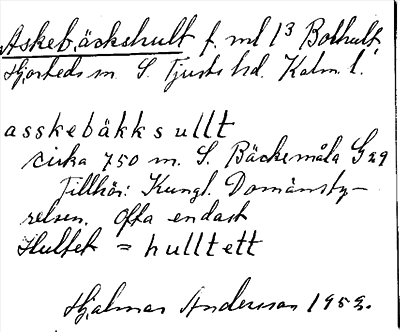 Askebäckshult f. ml 1³ Bolhult,
Hjorteds sn. S. Tjusts hd. Kalm. l.
asskebäkksullt
cirka 750 m. S. Bäckemåla G29
Tillhör: Kungl. Domänsty-
relsen. Ofta endast
Hultet = hulltett
Hjalmar Andersson 1953.